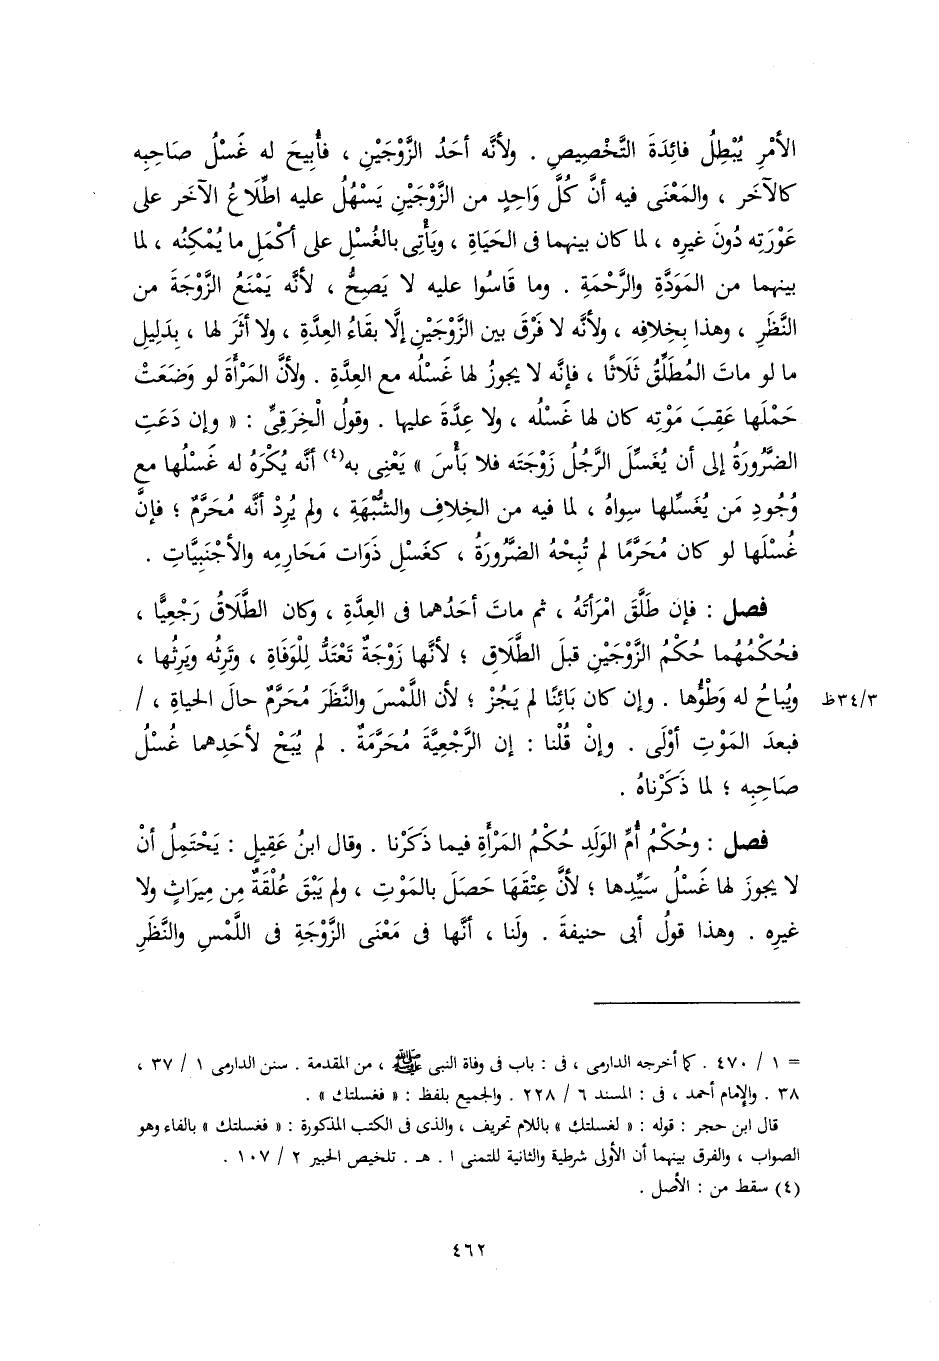 الأمْرِ يُبْطِلُ فائِدَةَ التَّخْصِيصِ . ولأنَّه أحَدُ الزَّوْجَيْنِ ، فأُبِيحَ له غَسْلُ صَاحِبِه
كالآخَرِ ، والمَعْنَى فيه أنَّ كُلَّ وَاحِدٍ من الزَّوْجَيْنِ يَسْهُلُ عليه اطِّلَاعُ الآخَرِ على
عَوْرَتِه دُونَ غيرِه ، لما كان بينهما فى الحَيَاةِ ، ويَأْتِى بالغُسْلِ على أكْمَلِ ما يُمْكِنُه ، لما
بينهما من المَوَدَّةِ والرَّحْمَةِ . وما قَاسُوا عليه لا يَصِحُّ ، لأنَّه يَمْنَعُ الزَّوْجَةَ من
النَّظَرِ ، وهذا بِخِلافِه ، ولأنَّه لا فَرْقَ بين الزَّوْجَيْنِ إلَّا بَقَاءُ العِدَّةِ ، ولا أثَرَ لها ، بِدَلِيلِ
ما لو ماتَ المُطَلِّقُ ثَلَاثًا ، فإنَّه لا يجوزُ لها غَسْلُه مع العِدَّةِ . ولأنَّ المَرْأةَ لو وَضَعَتْ
حَمْلَها عَقِبَ مَوْتِه كان لها غَسْلُه ، ولا عِدَّةَ عليها . وقولُ الْخِرَقِىِّ : « وإن دَعَتِ
الضَّرُورَةُ إلى أن يُغَسِّلَ الرَّجُلُ زَوْجَتَه فلا بَأْسَ » يَعْنِى به(٤) أنَّه يُكْرَهُ له غَسْلُها مع
وُجُودِ مَن يُغَسِّلها سِواهُ ، لما فيه من الخِلافِ والشُّبْهَةِ ، ولم يُرِدْ أنَّه مُحَرَّمٌ ؛ فإنَّ
غُسْلَها لو كان مُحَرَّمًا لم تُبِحْهُ الضَّرُورَةُ ، كغَسْلِ ذَوَات مَحَارِمِه والأجْنَبِيَّاتِ .
فصل : فإن طَلَّقَ امْرَأَتَهُ ، ثم ماتَ أحَدُهما فى العِدَّةِ ، وكان الطَّلَاقُ رَجْعِيًّا ،
فحُكْمُهُما حُكْمُ الزَّوْجَيْنِ قبلَ الطَّلَاقِ ؛ لأنَّها زَوْجَةٌ تَعْتَدُّ لِلْوَفَاةِ ، وتَرِثُه ويَرِثُها ،
ويُباحُ له وَطْؤُها . وإن كان بَائِنًا لم يَجُزْ ؛ لأن اللَّمْسَ والنَّظَرَ مُحَرَّمٌ حالَ الحياةِ ، / ٣٤/٣ظ
فبعدَ المَوْتِ أوْلَى . وإنْ قُلْنا : إن الرَّجْعِيَّةَ مُحَرَّمَةٌ . لم يُبَحْ لأحَدِهما غُسْلُ
صَاحِبِه ؛ لما ذَكَرْناهُ .
فصل : وحُكْمُ أُمِّ الوَلَدِ حُكْمُ المَرْأةِ فيما ذَكَرْنا . وقال ابنُ عَقِيلٍ : يَحْتَمِلُ أنْ
لا يجوزَ لها غَسْلُ سَيِّدِها ؛ لأنَّ عِتْقَهَا حَصَلَ بالمَوْتِ ، ولم يَبْقَ عُلْقَةٌ مِن مِيرَاثٍ ولا
غيرِه . وهذا قولُ أبى حنيفةَ . ولَنا ، أنَّها فى مَعْنَى الزَّوْجَةِ فى اللَّمْسِ والنَّظَرِ
= ١ / ٤٧٠ . كما أخرجه الدارمى ، فى : باب فى وفاة النبى ﷺ ، من المقدمة . سنن الدارمى ١ / ٣٧ ،
٣٨ . والإمام أحمد ، فى : المسند ٦ / ٢٢٨ . والجميع بلفظ : « فغسلتك » .
قال ابن حجر : قوله : « لغسلتك » باللام تحريف ، والذى فى الكتب المذكورة : « فغسلتك » بالفاء وهو
الصواب ، والفرق بينهما أن الأولى شرطية والثانية للتمنى ا . هـ . تلخيص الحبير ٢ / ١٠٧ .
(٤) سقط من : الأصل .
٤٦٢